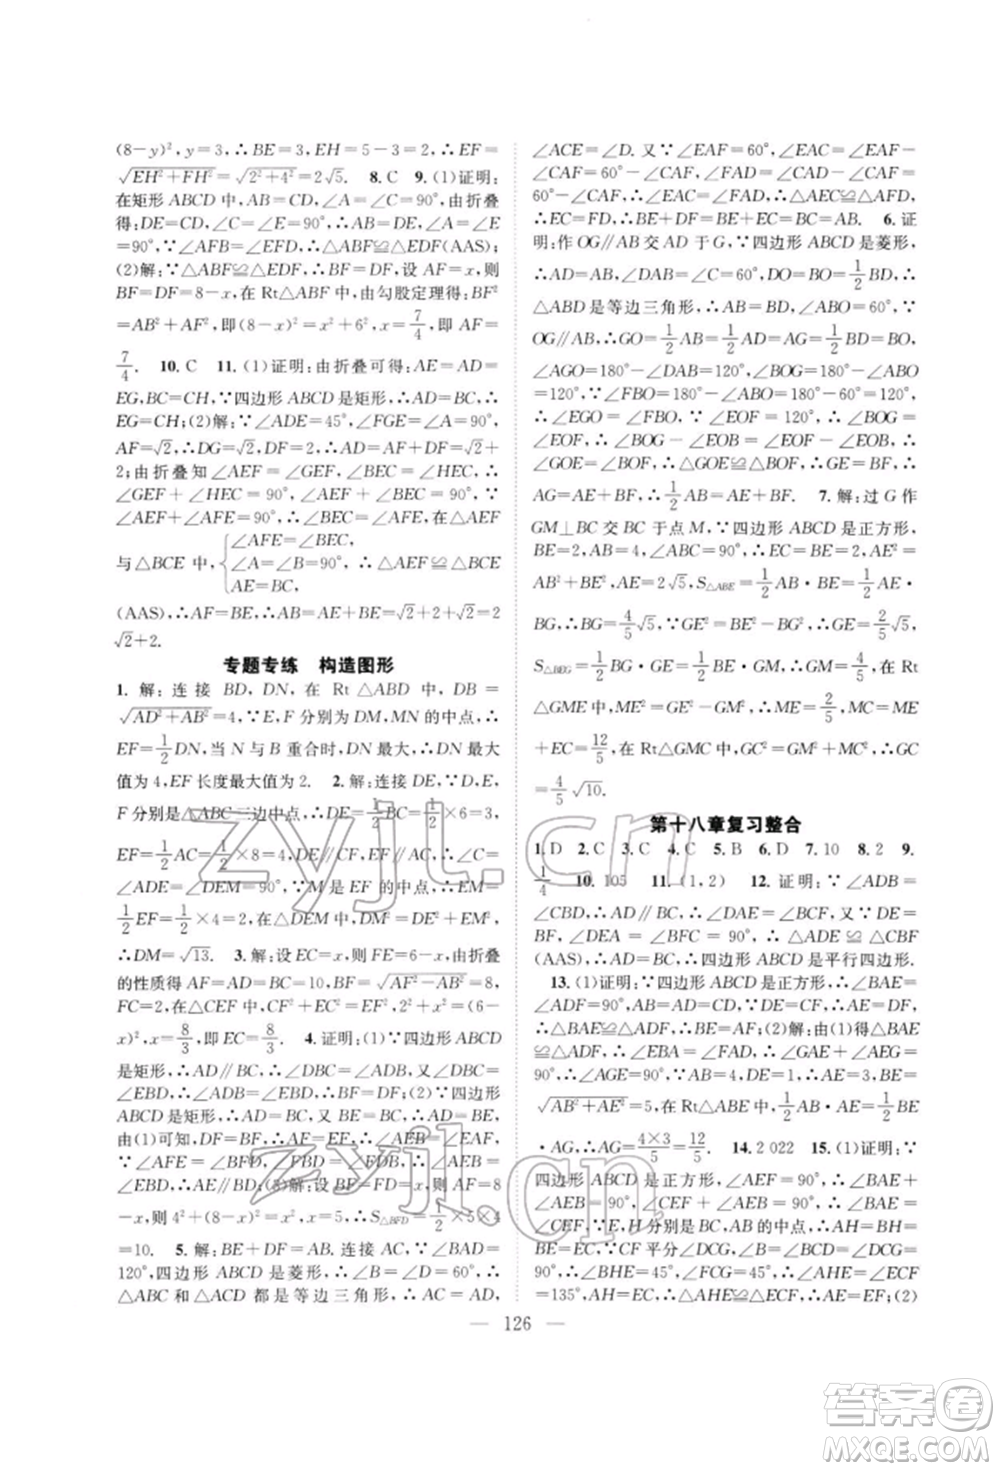 (8－y)²，y＝3，∴BE＝3，EH＝5－3＝2，∴EF＝
√(EH²＋FH²)＝√(2²＋4²)＝2√5． 8. C 9. (1)证明：
在矩形 ABCD 中，AB＝CD，∠A＝∠C＝90°，由折叠
得：DE＝CD，∠C＝∠E＝90°，∴AB＝DE，∠A＝∠E
＝90°，∵∠AFB＝∠EFD，∴△ABF≌△EDF(AAS)；
(2)解：∵△ABF≌△EDF，∴BF＝DF，设 AF＝x，则
BF＝DF＝8－x，在 Rt△ABF 中，由勾股定理得：BF²
＝AB²＋AF²，即(8－x)²＝x²＋6²，x＝7/4，即 AF＝
7/4． 10. C 11. (1)证明：由折叠可得：AE＝AD＝
EG，BC＝CH，∵四边形 ABCD 是矩形，∴AD＝BC，∴
EG＝CH；(2)解：∵∠ADE＝45°，∠FGE＝∠A＝90°，
AF＝√2，∴DG＝√2，DF＝2，∴AD＝AF＋DF＝√2＋
2；由折叠知∠AEF＝∠GEF，∠BEC＝∠HEC，∴
∠GEF＋∠HEC＝90°，∠AEF＋∠BEC＝90°，∵
∠AEF＋∠AFE＝90°，∴∠BEC＝∠AFE，在△AEF
与△BCE 中，{∠AFE＝∠BEC，
∠A＝∠B＝90°，∴△AEF≌△BCE
AE＝BC，
(AAS)，∴AF＝BE，∴AB＝AE＋BE＝√2＋2＋√2＝2
√2＋2．
专题专练 构造图形
1. 解：连接 BD，DN，在 Rt△ABD 中，DB＝
√(AD²＋AB²)＝4，∵E，F 分别为 DM，MN 的中点，∴
EF＝1/2DN，当 N 与 B 重合时，DN 最大，∴DN 最大
值为 4，EF 长度最大值为 2． 2. 解：连接 DE，∵D，E，
F 分别是△ABC 三边中点，∴DE＝1/2BC＝1/2×6＝3，
EF＝1/2AC＝1/2×8＝4，DE∥BC，EF∥AC，∴
∠DEF＝∠BFE＝∠C＝90°，∵M 是 EF 的中点，∴EM＝
1/2EF＝1/2×4＝2，在△DEM 中，∠DEM＝90°，
∴DM＝√13． 3. 解：设 EC＝x，则 FE＝6－x，由折叠
的性质得 AF＝AD＝BC＝10，BF＝√(AF²－AB²)＝8，
FC＝2，在△CEF 中，CF²＋EC²＝EF²，2²＋x²＝(6－
x)²，x＝8/3，即 EC＝8/3． 4. 证明：(1)∵四边形 ABCD
是矩形，∴AD∥BC，∴∠ADB＝∠DBC，∵∠DBC＝
∠EBD，∴∠ADB＝∠EBD，∴BF＝DF；(2)∵四边形
ABCD 是矩形，∴AD＝BC，∵AD＝BE，∴AD＝BE，
由(1)可知，DF＝BF，∴AF＝EF，∴∠AEB＝∠EAF，
∵∠AFE＝∠BFD，∠FBD＝∠FDB，∴∠AEB＝
∠EBD，∴AE∥BD；(3)解：设 BF＝DF＝x，则 AF＝8
－x，则 4²＋(8－x)²＝x²，x＝5，∴S△BFD＝1/2×5×4
＝10． 5. 解：BE＋DF＝AB. 连接 AC，∵∠BAD＝
120°，四边形 ABCD 是菱形，∴∠B＝∠D＝60°，∴
△ABC 和△ACD 都是等边三角形，∴AC＝AD，
∠ACE＝∠D. 又∵∠EAF＝60°，∠EAC＝∠EAF－
∠CAF＝60°－∠CAF，∠FAD＝∠CAD－∠CAF＝
60°－∠CAF，∴∠EAC＝∠FAD，∴△AEC≌△AFD，
∴EC＝FD，∴BE＋DF＝BE＋EC＝BC＝AB． 6. 证
明：作 OG∥AB 交 AD 于 G，∵四边形 ABCD 是菱形，
∴AB＝AD，∠DAB＝∠C＝60°，BO＝DO＝1/2BD，∴
△ABD 是等边三角形，∴AB＝BD，∠ABO＝60°，∵
OG∥AB，∴GO＝1/2AB＝1/2AD＝AG＝1/2BD＝BO，
∠AGO＝180°－∠DAB＝120°，∠BOG＝180°－∠ABO
＝120°，∵∠FBO＝180°－∠ABO＝180°－60°＝120°，
∴∠EGO＝∠FBO，∵∠EOF＝120°，∴∠BOG＝
∠EOF，∴∠BOG－∠EOB＝∠EOF－∠EOB，∴
∠GOE＝∠BOF，∴△GOE≌△BOF，∴GE＝BF，∴
AG＝AE＋BF，∴1/2AB＝AE＋BF． 7. 解：过 G 作
GM⊥BC 交 BC 于点 M，∵四边形 ABCD 是正方形，
BE＝2，∴AB＝BC＝4，∠ABC＝90°，∴AE²＝
AB²＋BE²＝4²＋2²，AE＝2√5，S△ABE＝1/2AE·
BG＝1/2AB·BE，∴BG＝4/5√5，∵GE²＝BE²－BG²，∴GE＝2/5√5，
S△BEG＝1/2BG·GE＝1/2BE·GM，∴GM＝4/5，在 Rt
△GME 中，∵ME²＝GE²－GM²，∴ME＝2/5，∴MC
＝12/5，在 Rt△GMC 中，GC²＝GM²＋MC²，∴GC
＝4/5√10．
第十八章复习整合
1. D 2. C 3. C 4. C 5. B 6. D 7. 10 8. 2 9.
1/4 10. 105 11. (1，2) 12. 证明：∵∠ADB＝
∠CBD，∴AD∥BC，∵AE⊥BD，CF⊥BD，
∴∠DEA＝∠BFC＝90°，∴△ADE≌△CBF
(AAS)，∴AD＝BC，∴四边形 ABCD 是平行四边形．
13. (1)证明：∵四边形 ABCD 是正方形，∴∠BAE＝
∠ADF＝90°，AB＝AD＝CD，∵DE＝CF，∴AE＝DF，
∴△BAE≌△ADF；(2)解：由(1)得△BAE
≌△ADF，∴∠EBA＝∠FAD，∴∠GAE＋∠AEG＝
90°，∴∠AGE＝90°，∵AB＝4，DE＝1，∴AE＝3，∴BE＝
√(AB²＋AE²)＝5，在 Rt△ABE 中，1/2AB·AE＝1/2BE
·AG，∴AG＝4×3/5＝12/5． 14. 2 022 15. (1)证明：∵
四边形 ABCD 是正方形，∴∠B＝90°，∴∠BAE＋
∠AEB＝90°，∠CEF＋∠AEB＝90°，∴∠BAE＝
∠CEF，∵E，H 分别是 BC，AB 的中点，∴AH＝BH＝
BE＝CE，∵CF 平分∠DCG，∴∠DCF＝∠FCG＝
45°，∴∠BHE＝45°，∴∠AHE＝∠ECF＝
135°，∴△AHE≌△ECF，∴AE＝EF；(2)
126
zyjl.cn
zyjl.cn
答案圈
MXQE.COM